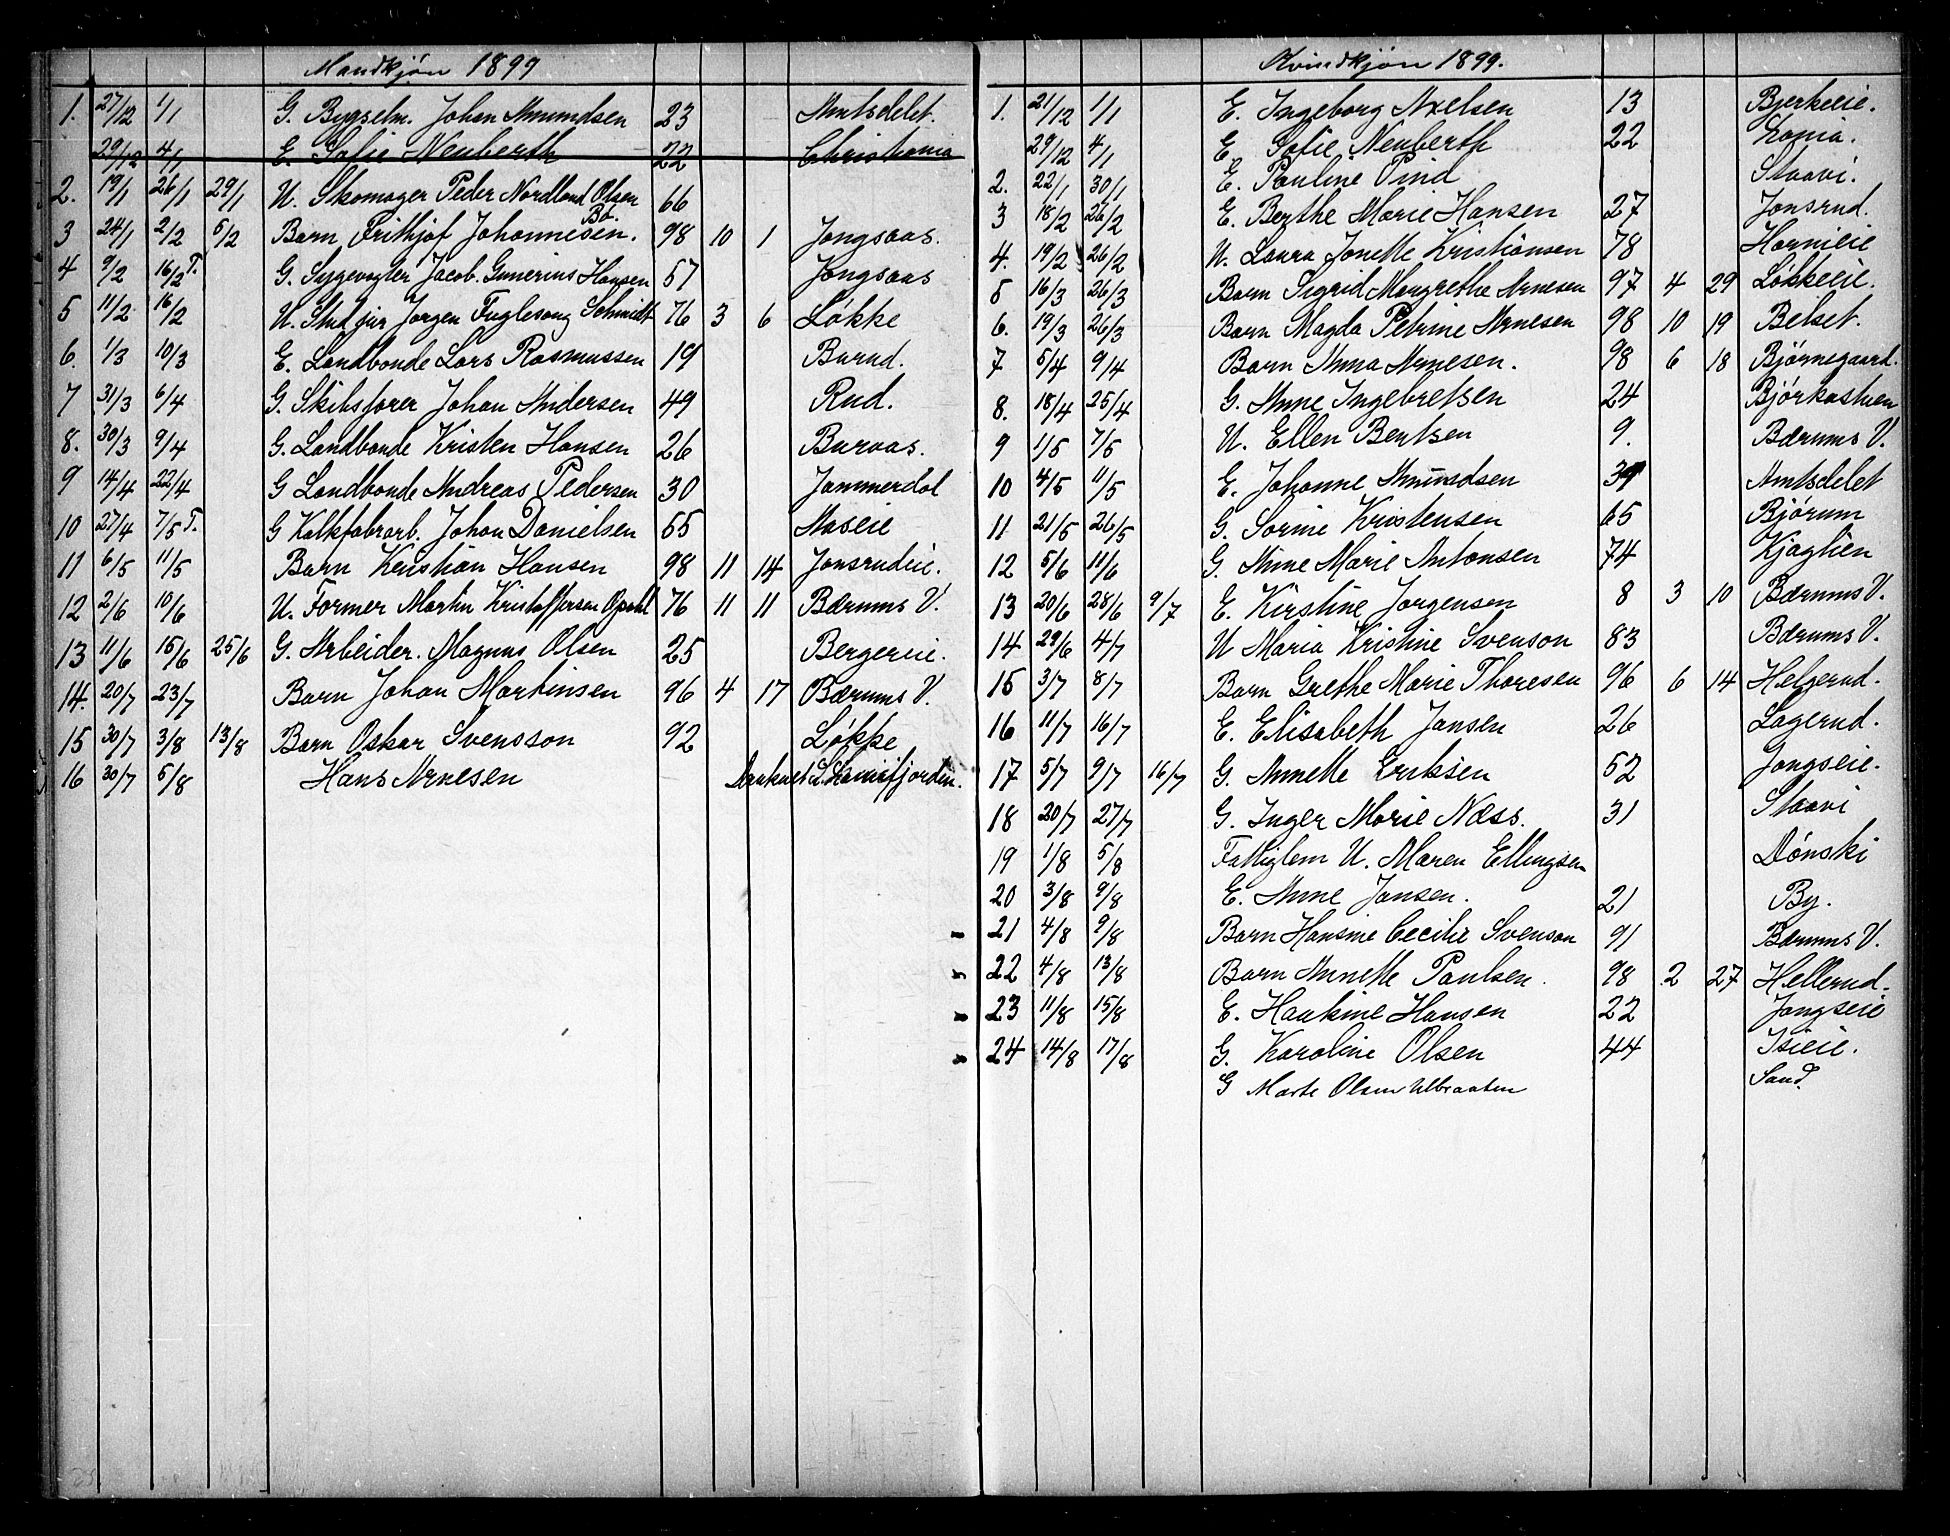 Mandkjøn 1899
1. 27/12 1/1 G. Bygselm. Johan Amundsen 23 Amtsdelet.
29/12 4/1 E. Sofie Neuberth 22 Christiania
2. 19/1 26/1 29/1 U. Skomager Peder Nordlund Olsen 66
Bø.
3 24/1 2/2 5/2 Barn Frithjof Johannesen. 98 10 1 Jongsaas.
4 9/2 16/2 T. G. Sygevogter Jacob Gunerius Hansen 57 Jongsaas
5 11/2 16/2 U. Stud jur Jørgen Fuglesang Schmidt 76 3 6 Løkke
6. 1/3 10/3 E. Landbonde Lars Rasmussen 19 Burud.
7 31/3 6/4 G. Skibsfører Johan Andersen 49 Rud.
8. 30/3 9/4 G. Landbonde Kristen Hansen 26 Buraas.
9 14/4 22/4 G Landbonde Andreas Pedersen 30 Jammerdal
10 27/4 7/5 T. G Kalkfabrarb. Johan Danielsen 55 Naseie
11 6/5 11/5 Barn Kristian Hansen 98 11 14 Jonsrudeie.
12 2/6 10/6 U. Former Martin Kristoffersen Opdahl 76 11 11 Bærums V.
13 11/6 15/6 25/6 G. Arbeider. Magnus Olsen 25 Bergereie.
14. 20/7 23/7 Barn Johan Martinsen 96 4 17 Bærums V.
15 30/7 3/8 13/8 Barn Oskar Svensson 92 Løkke
16 30/7 5/8 Hans Arnesen Druknet i
Kvindkjøn 1899.
1. 21/12 1/1 E. Ingeborg Axelsen 13 Bjerkeeie.
29/12 4/1 E Sofie Neuberth 22 Xania.
2. 22/1 30/1 E. Pauline Pind Staavi.
3 18/2 26/2 E. Berthe Marie Hansen 27 Jonsrud.
4. 19/2 26/2 U. Laura Jonette Kristiansen 78 Hornieie
5 16/3 26/3 Barn Sigrid Margrethe Arnesen 97 4 29 Løkkeeie.
6. 19/3 26/3 Barn Magda Petrine Arnesen 98 10 19 Belset.
7 5/4 9/4 Barn Anna Arnesen. 98 6 18 Bjørnegaard.
8. 18/4 25/4 G. Anne Ingebretsen 24 Bjørkastuen
9 1/5 7/5 U. Ellen Bentsen 9. Bærums V.
10 4/5 11/5 E. Johanne Amundsen Amtsdelet
11 21/5 26/5 G. Sorine Kristensen 65 Bjørum
12 5/6 11/6 G. Anne Marie Antonsen 74 Kjaglien
13 20/6 28/6 9/7 E. Kirstine Jørgensen 8 3 10 Bærums V.
14 29/6 4/7 U Maria Kristine Svenson 83 Bærums V.
15 3/7 8/7 Barn Grethe Marie Thoresen 96 6 14 Helgerud.
16 11/7 16/7 E. Elisabeth Jansen 26 Lagerud.
17 5/7 9/7 16/7 G. Annette Eriksen 52 Jongseie.
18 20/7 27/7 G. Inger Marie Næss. 31 Staavi
19 1/8 5/8 Fattiglem U. Maren Ellingsen Dønski
20 3/8 9/8 E. Anne Jansen. 21 By.
21 4/8 9/8 Barn Hansine Cecilie Svenson 91 Bærums V.
22 4/8 13/8 Barn Annette Paulsen. 98 2 27 Hellerud.
23 11/8 15/8 E. Haakine Hansen 22 Jongseie
24 14/8 17/8 G. Karoline Olsen 44 Isieie.
G Marte Olsen Ulbraaten Sand.